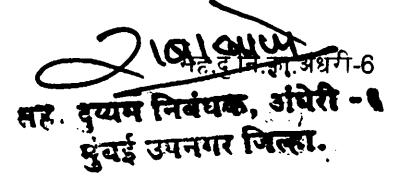 सह. दु. नि. का. अंधेरी-6
सह. दुय्यम निबंधक, अंधेरी -
मुंबई उपनगर जिल्हा.